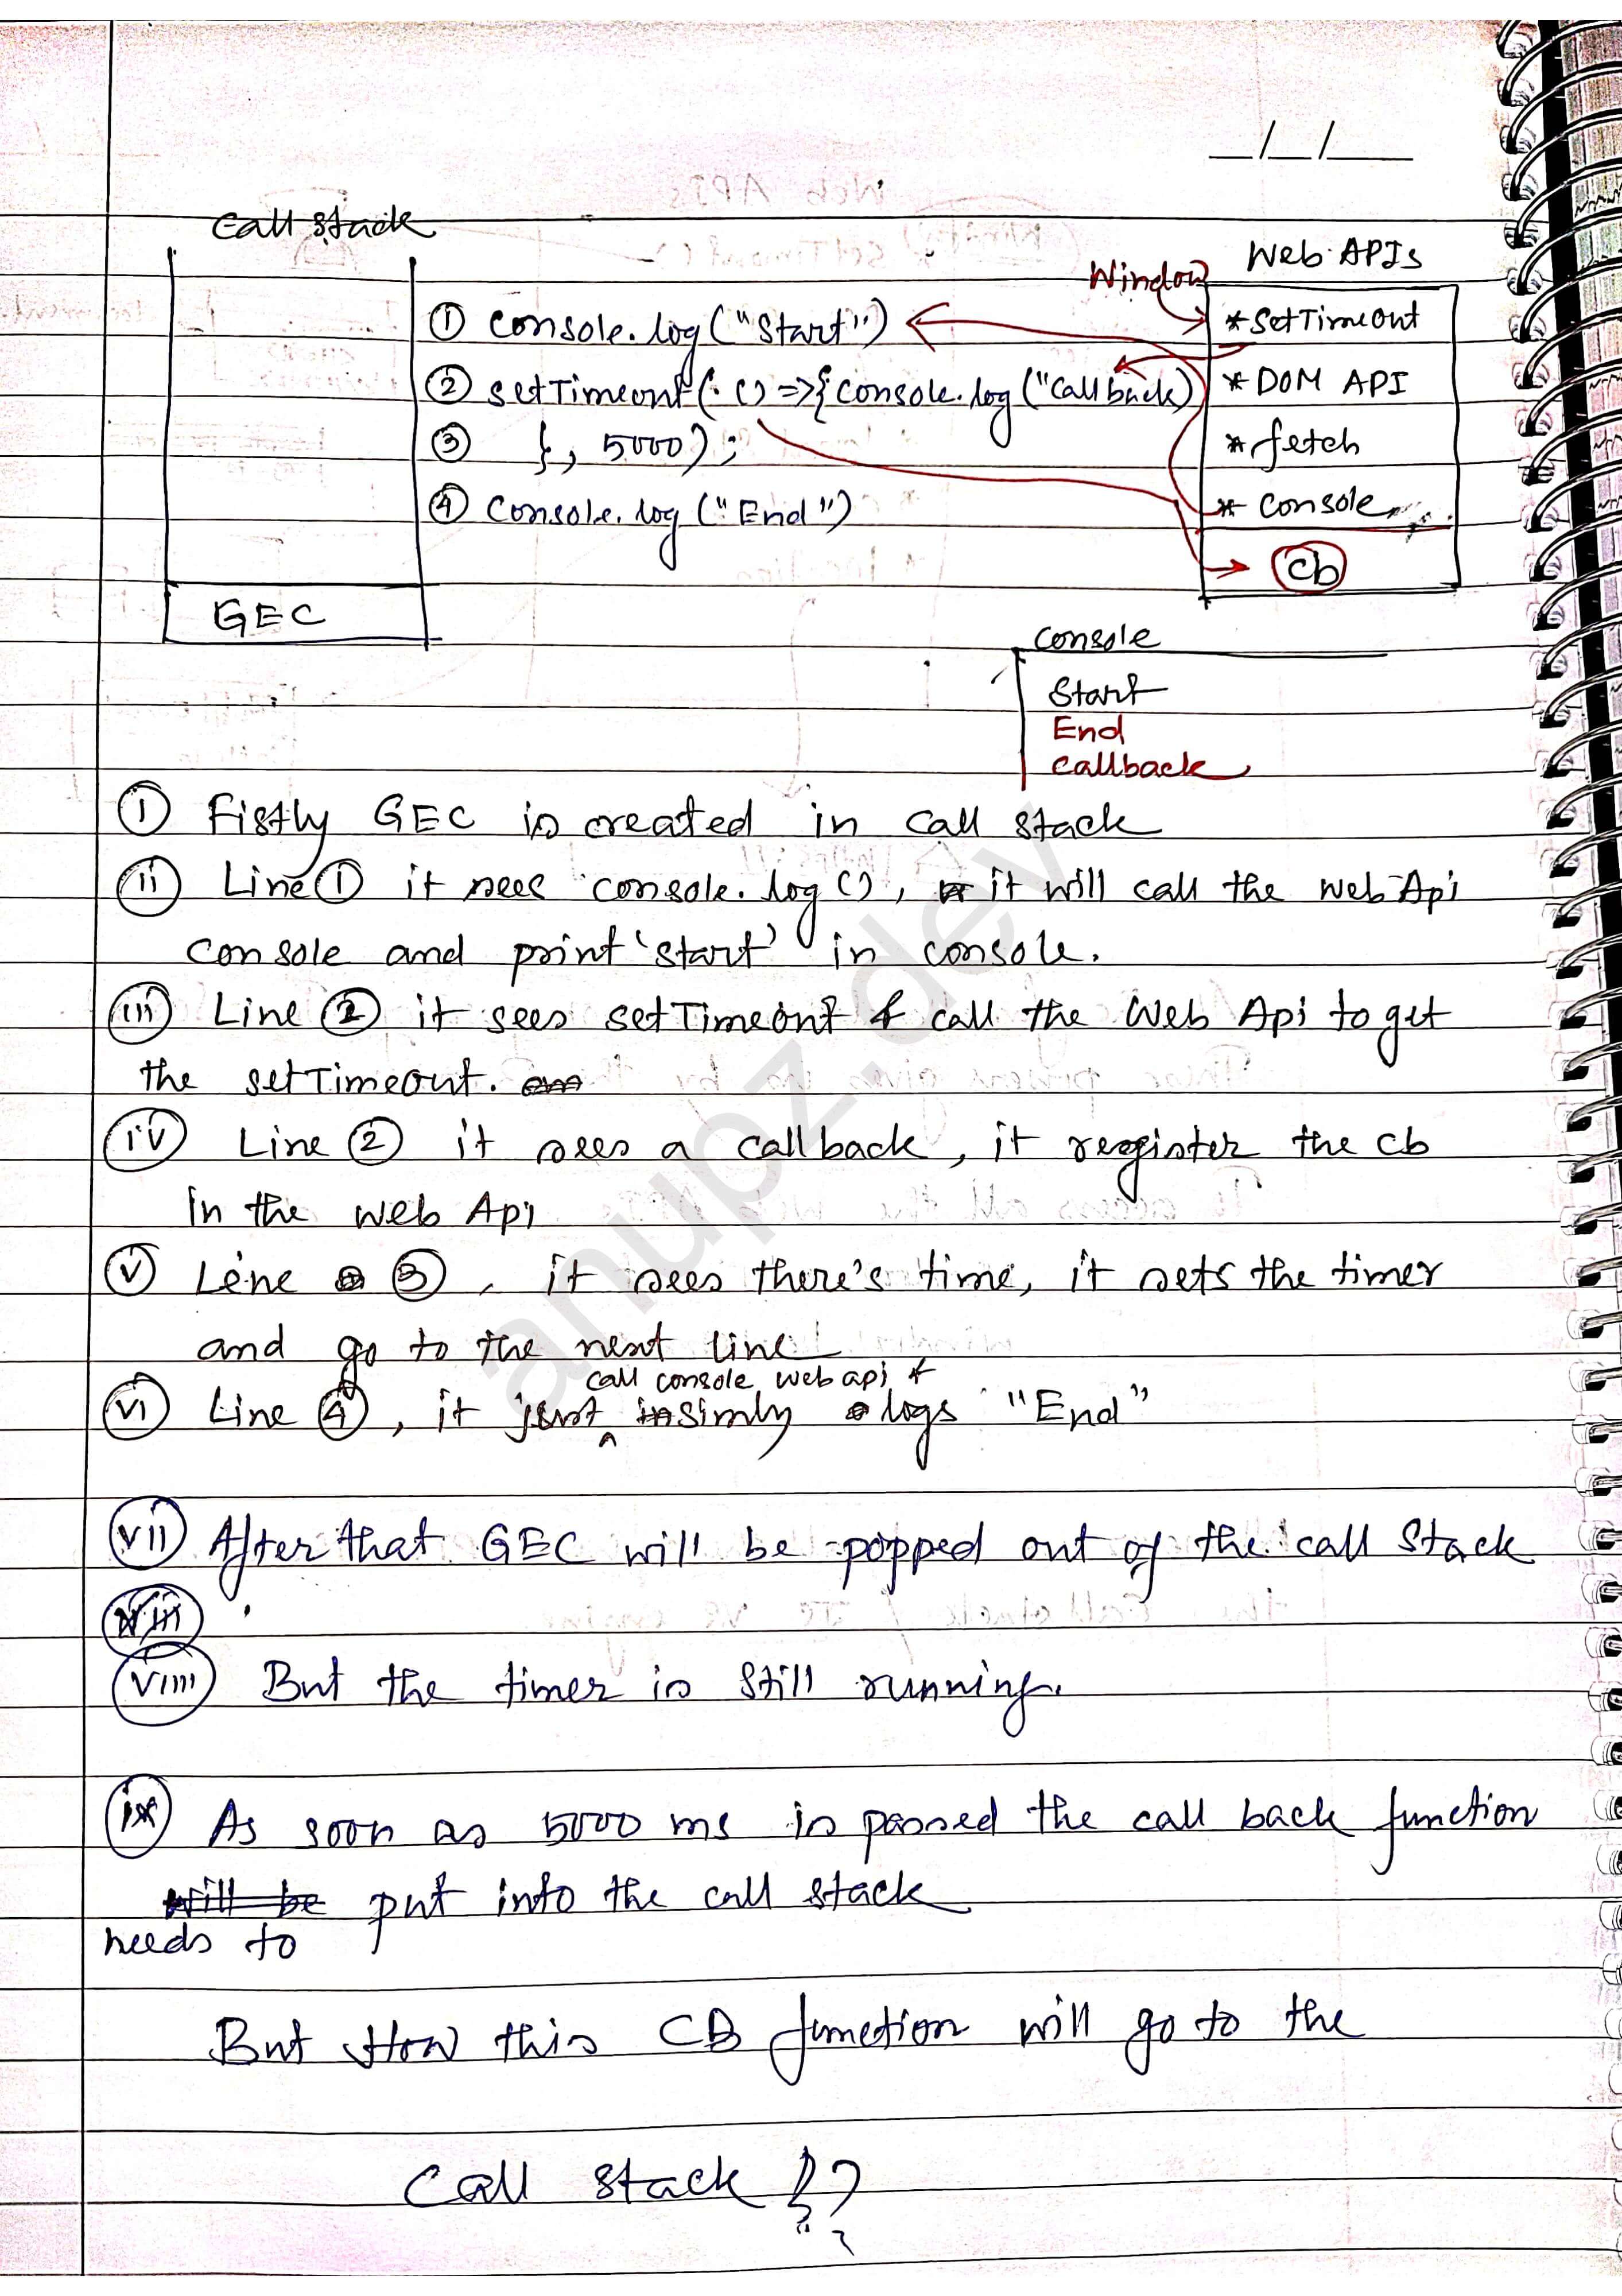 _/_/__
Call Stack
Web APIs
Window
① console.log("Start")
* SetTimeout
② setTimeout(() => {console.log("Callback)
* DOM API
③ }, 5000);
* fetch
④ console.log("End")
* console
cb
GEC
console
Start
End
callback
① Fistly GEC is created in call stack
ii Line ① it sees console.log(), it will call the web Api
console and print 'start' in console.
iii Line ② it sees setTimeout & call the Web Api to get
the setTimeout.
iv Line ② it sees a callback, it register the cb
in the web Api
v Line ③, it sees there's time, it sets the timer
and go to the next line
call console web api &
vi Line ④, it just simly logs "End"
vii After that GEC will be popped out of the call Stack
viii
viiii But the timer is still running.
ix As soon as 5000 ms is passed the call back function
will be put into the call stack
needs to
But How this CB function will go to the
Call stack ??
?
anupz.dev